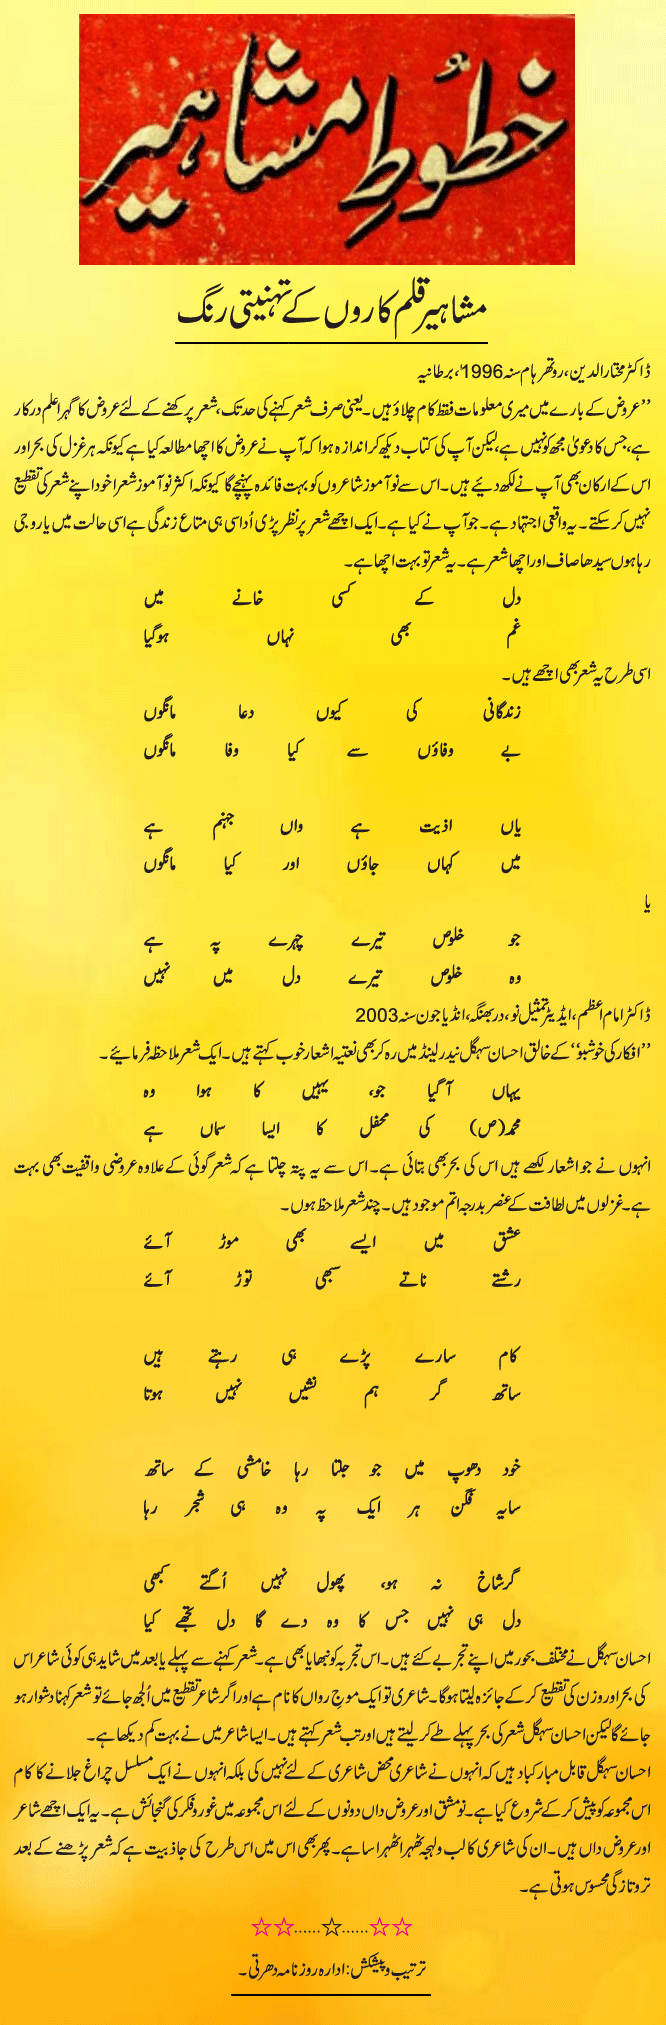 خطوطِ مشاہیر
مشاہیر قلم کاروں کے تہنیتی رنگ
ڈاکٹر مختار الدین، روتھر ہام سنہ 1996ء، برطانیہ
’’عروض کے بارے میں میری معلومات فقط کام چلاؤ ہیں۔ یعنی صرف شعر کہنے کی حد تک، شعر پرکھنے کے لئے عروض کا گہرا علم درکار
ہے، جس کا دعویٰ مجھ کو نہیں ہے، لیکن آپ کی کتاب دیکھ کر اندازہ ہوا کہ آپ نے عروض کا اچھا مطالعہ کیا ہے کیونکہ ہر غزل کی بحر اور
اس کے ارکان بھی آپ نے لکھ دئیے ہیں۔ اس سے نو آموز شاعروں کو بہت فائدہ پہنچے گا کیونکہ اکثر نو آموز شعرا خود اپنے شعر کی تقطیع
نہیں کر سکتے۔ یہ واقعی اجتہاد ہے۔ جو آپ نے کیا ہے۔ ایک اچھے شعر پر نظر پڑی اُداسی ہی متاع زندگی ہے اسی حالت میں یارو جی
رہا ہوں سیدھا صاف اور اچھا شعر ہے۔ یہ شعر تو بہت اچھا ہے۔
دل کے کسی خانے میں
غم بھی نہاں ہوگیا
اسی طرح یہ شعر بھی اچھے ہیں۔
زندگانی کی کیوں دعا مانگوں
بے وفاؤں سے کیا وفا مانگوں
یاں اذیت ہے واں جہنم ہے
میں کہاں جاؤں اور کیا مانگوں
یا
جو خلوص تیرے چہرے پہ ہے
وہ خلوص تیرے دل میں نہیں
ڈاکٹر امام اعظم، ایڈیٹر تمثیل نو، دربھنگہ، انڈیا جون سنہ 2003
’’افکار کی خوشبو‘‘ کے خالق احسان سہگل نیدر لینڈ میں رہ کر بھی نعتیہ اشعار خوب کہتے ہیں۔ ایک شعر ملاحظہ فرمائیے۔
یہاں آگیا جو، یہیں کا ہوا وہ
محمد(ص) کی محفل کا ایسا سماں ہے
انہوں نے جو اشعار لکھے ہیں اس کی بحر بھی بتائی ہے۔ اس سے یہ پتہ چلتا ہے کہ شعر گوئی کے علاوہ عروضی واقفیت بھی بہت
ہے۔ غزلوں میں لطافت کے عنصر بدرجہ اتم موجود ہیں۔ چند شعر ملاحظ ہوں۔
عشق میں ایسے بھی موڑ آئے
رشتے ناتے سبھی توڑ آئے
کام سارے پڑے ہی رہتے ہیں
ساتھ گر ہم نشیں نہیں ہوتا
خود دھوپ میں جو جلتا رہا خامشی کے ساتھ
سایہ فگن ہر ایک پہ وہ ہی شجر رہا
گر شاخ نہ ہو، پھول نہیں اُگتے کبھی
دل ہی نہیں جس کا وہ دے گا دل تجھے کیا
احسان سہگل نے مختلف بحور میں اپنے تجربے کئے ہیں۔ اس تجربہ کو نبھایا بھی ہے۔ شعر کہنے سے پہلے یا بعد میں شاید ہی کوئی شاعر اس
کی بحر اور وزن کی تقطیع کر کے جائزہ لیتا ہوگا۔ شاعری تو ایک موجِ رواں کا نام ہے اور اگر شاعر تقطیع میں اُلجھ جائے تو شعر کہنا دشوار ہو
جائے گا لیکن احسان سہگل شعر کی بحر پہلے طے کر لیتے ہیں اور تب شعر کہتے ہیں۔ ایسا شاعر میں نے بہت کم دیکھا ہے۔
احسان سہگل قابل مبارکباد ہیں کہ انہوں نے شاعری محض شاعری کے لئے نہیں کی بلکہ انہوں نے ایک مسلسل چراغ جلانے کا کام
اس مجموعہ کو پیش کر کے شروع کیا ہے۔ نو مشق اور عروض داں دونوں کے لئے اس مجموعہ میں غور و فکر کی گنجائش ہے۔ یہ ایک اچھے شاعر
اور عروض داں ہیں۔ ان کی شاعری کا لب ولہجہ ٹھہرا ٹھہرا سا ہے۔ پھر بھی اس میں اس طرح کی جاذبیت ہے کہ شعر پڑھنے کے بعد
تروتازگی محسوس ہوتی ہے۔
☆☆......☆......☆☆
ترتیب و پیشکش: ادارہ روزنامہ دھرتی۔